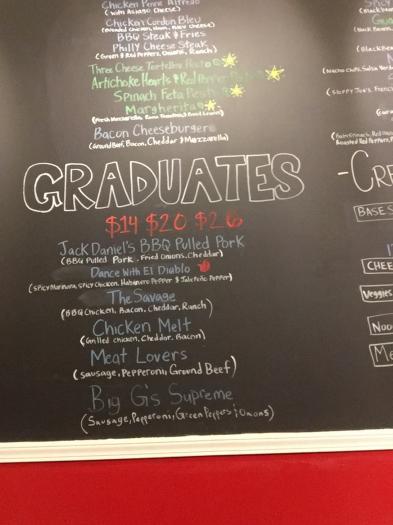 Chicken Penne Alfredo
(with Asiago Cheese)
Chicken Cordon Bleu
BBQ Steak & Fries
Philly Cheese Steak
(Green & Red Peppers, Onions, Ranch)
Three Cheese Tortellini Pesto
Artichoke Hearts & Red Pepper
Spinach Feta Pesto
Margherita
(Fresh Mozzarella, Roma Tomatoes & Basil Leaves)
Bacon Cheeseburger
(Ground Beef, Bacon, Cheddar & Mozzarella)
GRADUATES
$14 $20 $26
Jack Daniel's BBQ Pulled Pork
(BBQ Pulled Pork, Fried Onions, Cheddar)
Dance with El Diablo
(Spicy Marinara, Spicy Chicken, Habanero Pepper & Jalapeño Pepper)
The Savage
(BBQ Chicken, Bacon, Cheddar, Ranch)
Chicken Melt
(Grilled chicken, Cheddar, Bacon)
Meat Lovers
(Sausage, Pepperoni, Ground Beef)
Big G's Supreme
(Sausage, Pepperoni, Green Peppers & Onions)
-CRE
BASE S
CHEE
Veggies
NOO
ME